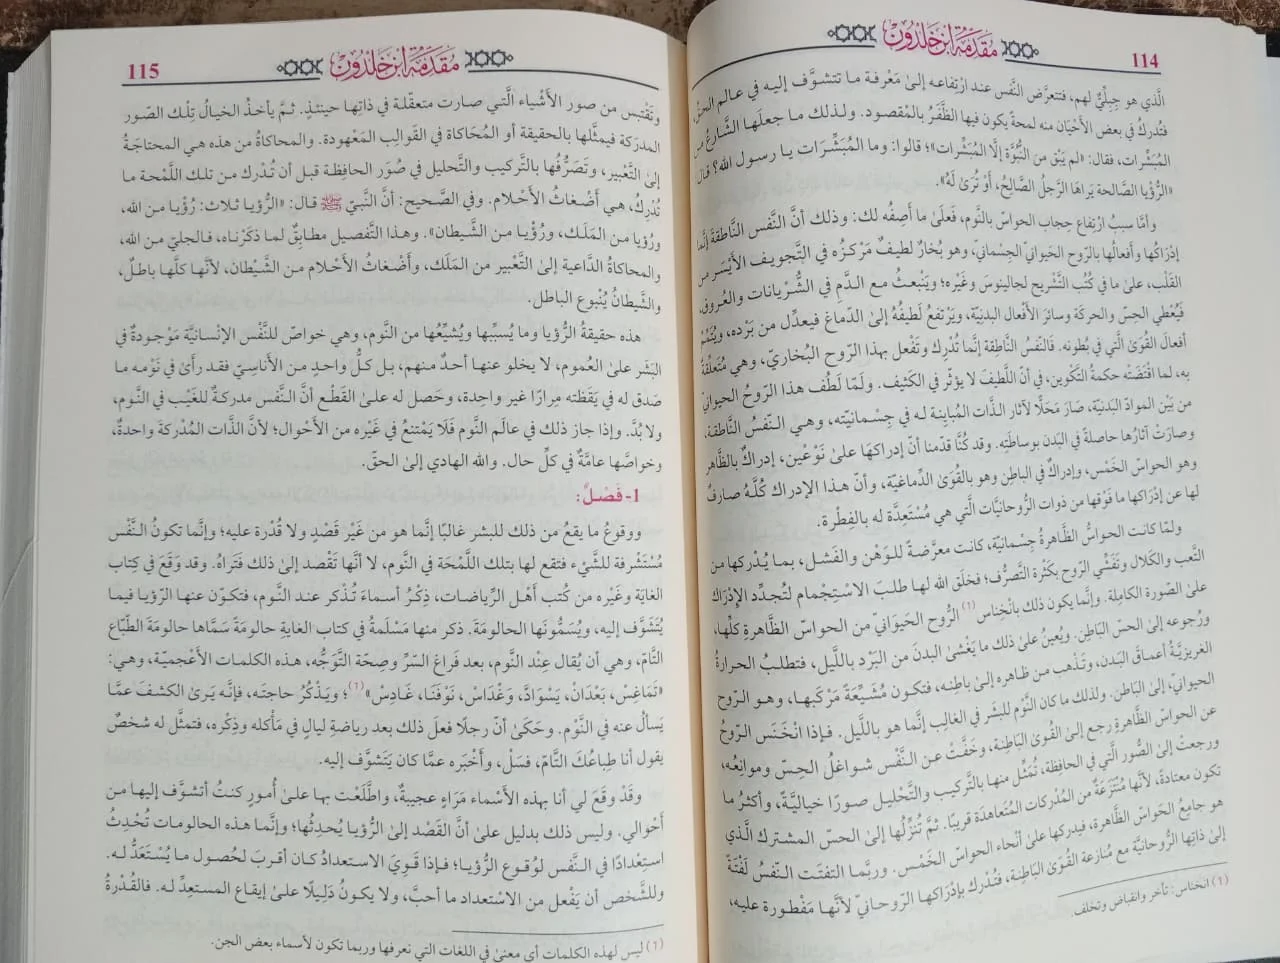 114
مقدمة ابن خلدون
الَّذي هو جِبِلِّيٌّ لهم، فتتعرَّض النَّفس عند ارْتِفاعه إلىٰ مَعْرفة ما تتشوَّف إليه في عالم الحقِّ،
فتُدركُ في بعض الأحْيَان منه لمحةً يكون فيها الظَّفَرُ بالمْقصود. ولذلك ما جعلَها الشَّارعُ من
المُبَشِّرات، فقال: «لم يَبْقَ من النُّبُوَّة إلَّا المُبَشِّرات»؛ قالوا: وما المُبَشِّرَات يا رسول الله؟ قال
«الرُّؤيا الصَّالحة يَراهَا الرَّجلُ الصَّالحُ، أَوْ تُرىٰ لَهُ».
وأمَّا سببُ ارْتِفاع حِجاب الحواسّ بالنَّوم، فَعلَىٰ ما أصِفُه لك: وذلك أنَّ النَّفس النَّاطِقةَ إنَّما
إدْرَاكُها وأفعالُها بالرّوح الحَيوانيّ الجِسْمانيّ، وهو بُخارٌ لطيفٌ مَرْكَزُه في التَّجويف الأيْسَر من
القَلْب، علىٰ ما في كُتُب التَّشْريح لجالينوسَ وغَيْره؛ ويَنْبعثُ مع الدَّمِ في الشُّرْيانات والعُروق،
فَيُعْطي الحِسَّ والحركةَ وسائرَ الأفْعال البدنيّة، ويَرْتفعُ لَطيفُهُ إلىٰ الدّماغ فيعدِّل من بَرْده، ويُتَمِّمُ
أفعالَ القُوَىٰ الَّتي في بُطونه. فالنَفْسُ النَّاطِقة إنَّما تُدْرك وتَفْعل بهذا الرّوح البُخاريّ، وهي مُتَعلِّقةٌ
به، لما اقْتَضَتْه حكمةُ التَّكْوين، في أنَّ اللَّطيفَ لا يؤثّر في الكَثيف. ولَمّا لَطُف هذا الرّوحُ الحيوانيّ
من بَيْن الموادّ البَدَنيّة، صَارَ مَحَلًّا لآثار الذَّات المُبايِنة له في جِسْمانيّته، وهي النّفسُ النَّاطقة،
وصارَتْ آثارُها حاصلةً في البَدن بوساطَتِه. وقد كُنَّا قدّمنا أنّ إدراكَها علىٰ نَوْعَين، إدراكٌ بالظَّاهر
وهو الحواسّ الخَمْس، وإدراكٌ في الباطِن وهو بالقُوىٰ الدِّماغيّة، وأنّ هذا الإدراكَ كُلَّهُ صارفٌ
لها عن إدْرَاكِها ما فَوْقها من ذوات الرّوحانيَّات الَّتي هي مُسْتَعِدَّة له بالفِطْرة.
ولمّا كانت الحواسُّ الظَّاهرةُ جِسْمانيّة، كانت معرَّضةً للوَهْن والفَشل، بما يُدْركها من
التَّعب والكَلال وتَفَشِّي الرّوح بكَثْرة التَّصرُّف؛ فخلَق الله لها طلبَ الاسْتِجْمام لتُجدِّد الإدْرَاك
علىٰ الصّورة الكاملة. وإنّما يكون ذلك بانْخِناس (1) الرُّوح الحَيوَاني من الحواسّ الظَّاهرةِ كلِّها،
ورُجوعه إلىٰ الحسّ البَاطِن. ويُعينُ علىٰ ذلك ما يَغْشىٰ البدنَ من البَرْد باللّيل، فتطلبُ الحرارةُ
الغريزيَّةُ أعماقَ البَدن، وتَذهب من ظاهره إلىٰ باطِنه، فتكون مُشَيِّعَةً مَرْكَبها، وهو الرّوح
الحيوانيّ، إلىٰ البَاطن. ولذلك ما كان النَّوْم للبشَر في الغالِب إنَّما هو باللَّيل. فإذا انْخَنَس الرّوحُ
عن الحواسّ الظَّاهرةِ رجع إلىٰ القُوىٰ البَاطِنة، وخَفَّتْ عن النَّفْس شواغلُ الحِسّ وموانِعُه،
ورجعتْ إلىٰ الصُّور الَّتي في الحافِظة، تُمَثِّل منها بالتَّركيب والتَّحْليل صوَرًا خياليَّةً، وأكثرُ ما
تكون معتادةً، لأنَّها مُنْتَزَعةٌ من المُدْركات المُتَعاهَدة قريبًا. ثمَّ تُنزِّلُها إلىٰ الحسّ المشترك الَّذي
هو جامِعُ الحَواسّ الظَّاهرة، فيدركها علىٰ أنْحاء الحواسّ الخَمْس. وربَّما التفتت النَّفسُ لَفْتةً
إلىٰ ذاتِها الرّوحانيَّة مع مُنازعة القُوىٰ البَاطِنة، فتُدْرك بإدْرَاكِها الرّوحانيّ لأنَّها مَفْطورة عليه،
(1) انخناس: تأخر وانقباض وتخلف.
115
مقدمة ابن خلدون
وتَقْتبس من صور الأشْياء الَّتي صارت متعقّلة في ذاتِها حينئذٍ. ثمَّ يأخذُ الخيالُ تِلْك الصّور
المدرَكة فيمثِّلها بالحقيقة أو المُحَاكاة في القَوالِب المَعْهودة. والمحاكاةُ من هذه هي المحتاجَةُ
إلىٰ التَّعْبير، وتَصَرُّفُها بالتَّركيب والتَّحليل في صُوَر الحافِظة قبل أن تُدْرك من تلك اللَّمْحة ما
تُدْركُ، هي أضْغاثُ الأحْلام. وفي الصَّحيح: أنَّ النَّبيّ ﷺ قال: «الرُّؤيا ثلاث: رُؤْيا من الله،
ورُؤيا من المَلَك، ورُؤْيا من الشَّيطان». وهذا التَّفصيل مطابِقٌ لما ذكَرْناه، فالجليّ من الله،
والمحاكاةُ الدَّاعية إلىٰ التَّعْبير من المَلَك، وأضْغاثُ الأحْلام من الشَّيْطان، لأنَّها كلَّها باطلٌ،
والشَّيطانُ يُنْبوع الباطل.
هذه حقيقةُ الرُّؤيا وما يُسبِّبها ويُشيِّعُها من النَّوم، وهي خواصّ للنَّفْس الإنْسانيَّة مَوْجودةٌ في
البَشر علىٰ العُموم، لا يخلو عنها أحدٌ منهم، بل كلُّ واحدٍ من الأناسِيّ فقد رأىٰ في نَوْمه ما
صَدق له في يَقظته مِرارًا غير واحِدة، وحَصل له علىٰ القَطْع أنَّ النَّفس مدركةٌ للغَيْب في النَّوم،
ولا بُدَّ. وإذا جاز ذلك في عالَم النَّوم فَلَا يَمْتنعُ في غَيْره من الأحْوال؛ لأنَّ الذَّات المُدْركةَ واحدةٌ،
وخواصَّها عامَّةٌ في كلِّ حال. والله الهادي إلىٰ الحقّ.
1- فَصْلٌ:
ووقوعُ ما يقعُ من ذلك للبشر غالبًا إنَّما هو من غَيْر قَصْدٍ ولا قُدْرة عليه؛ وإنَّما تكونُ النَّفْس
مُسْتَشرفة للشَّيْء فتقع لها بتلك اللَّمْحَة في النَّوم، لا أنَّها تَقْصد إلىٰ ذلك فَتَراهُ. وقد وَقَعَ في كِتاب
الغايَة وغَيْره من كُتب أهْل الرِّياضات، ذِكْرُ أسماءَ تُذْكر عند النَّوم، فتكوّن عنها الرّؤيا فيما
يُتَشَوَّف إليه، ويُسَمُّونَها الحالومَةَ. ذكر منها مَسْلَمةُ في كتاب الغايةِ حالومةً سَمَّاها حالومَةَ الطّبَّاع
التَّامّ، وهي أن يُقال عِنْد النَّوم، بعد فَراغ السِّرّ وصِحّة التَّوجُّه، هذه الكلمات الأعْجميّة، وهي:
«تَمَاغِسْ، بَعْدَانْ، يَسْوَادَّ، وَغْدَاسْ، نَوْفَنَا، غَادِسْ»(1)؛ ويَذْكُرُ حاجتَه، فإنَّه يَرىٰ الكشفَ عمَّا
يَسألُ عنه في النَّوْم. وحَكىٰ أنّ رجلًا فعلَ ذلك بعد رياضةِ ليالٍ في مَأكله وذِكْره، فتمثَّل له شخصٌ
يقول أنا طِباعُكَ التَّامّ، فسَلْ، وأخْبَره عمَّا كان يَتَشوَّف إليه.
وقَدْ وقَعَ لي أنا بهذه الأسْماء مَرَاءٍ عجيبةٌ، واطَّلَعْت بها علىٰ أُمورٍ كنتُ أتشوَّف إليها من
أحْوالي. وليس ذلك بدليل علىٰ أنَّ القَصْد إلىٰ الرُّؤيا يُحدِثُها؛ وإنَّما هذه الحالومات تُحْدِثُ
استِعْدادًا في النَّفس لوُقوع الرُّؤيا؛ فإذا قَوِيَ الاستعدادُ كان أقربَ لحُصول ما يُسْتَعَدُّ له.
وللشَّخص أن يَفْعل من الاستعداد ما أحبَّ، ولا يكونُ دَليلًا علىٰ إيقاع المستعدِّ له. فالقُدْرةُ
(1) ليس لهذه الكلمات أي معنىٰ في اللغات التي نعرفها وربما تكون لأسماء بعض الجن.